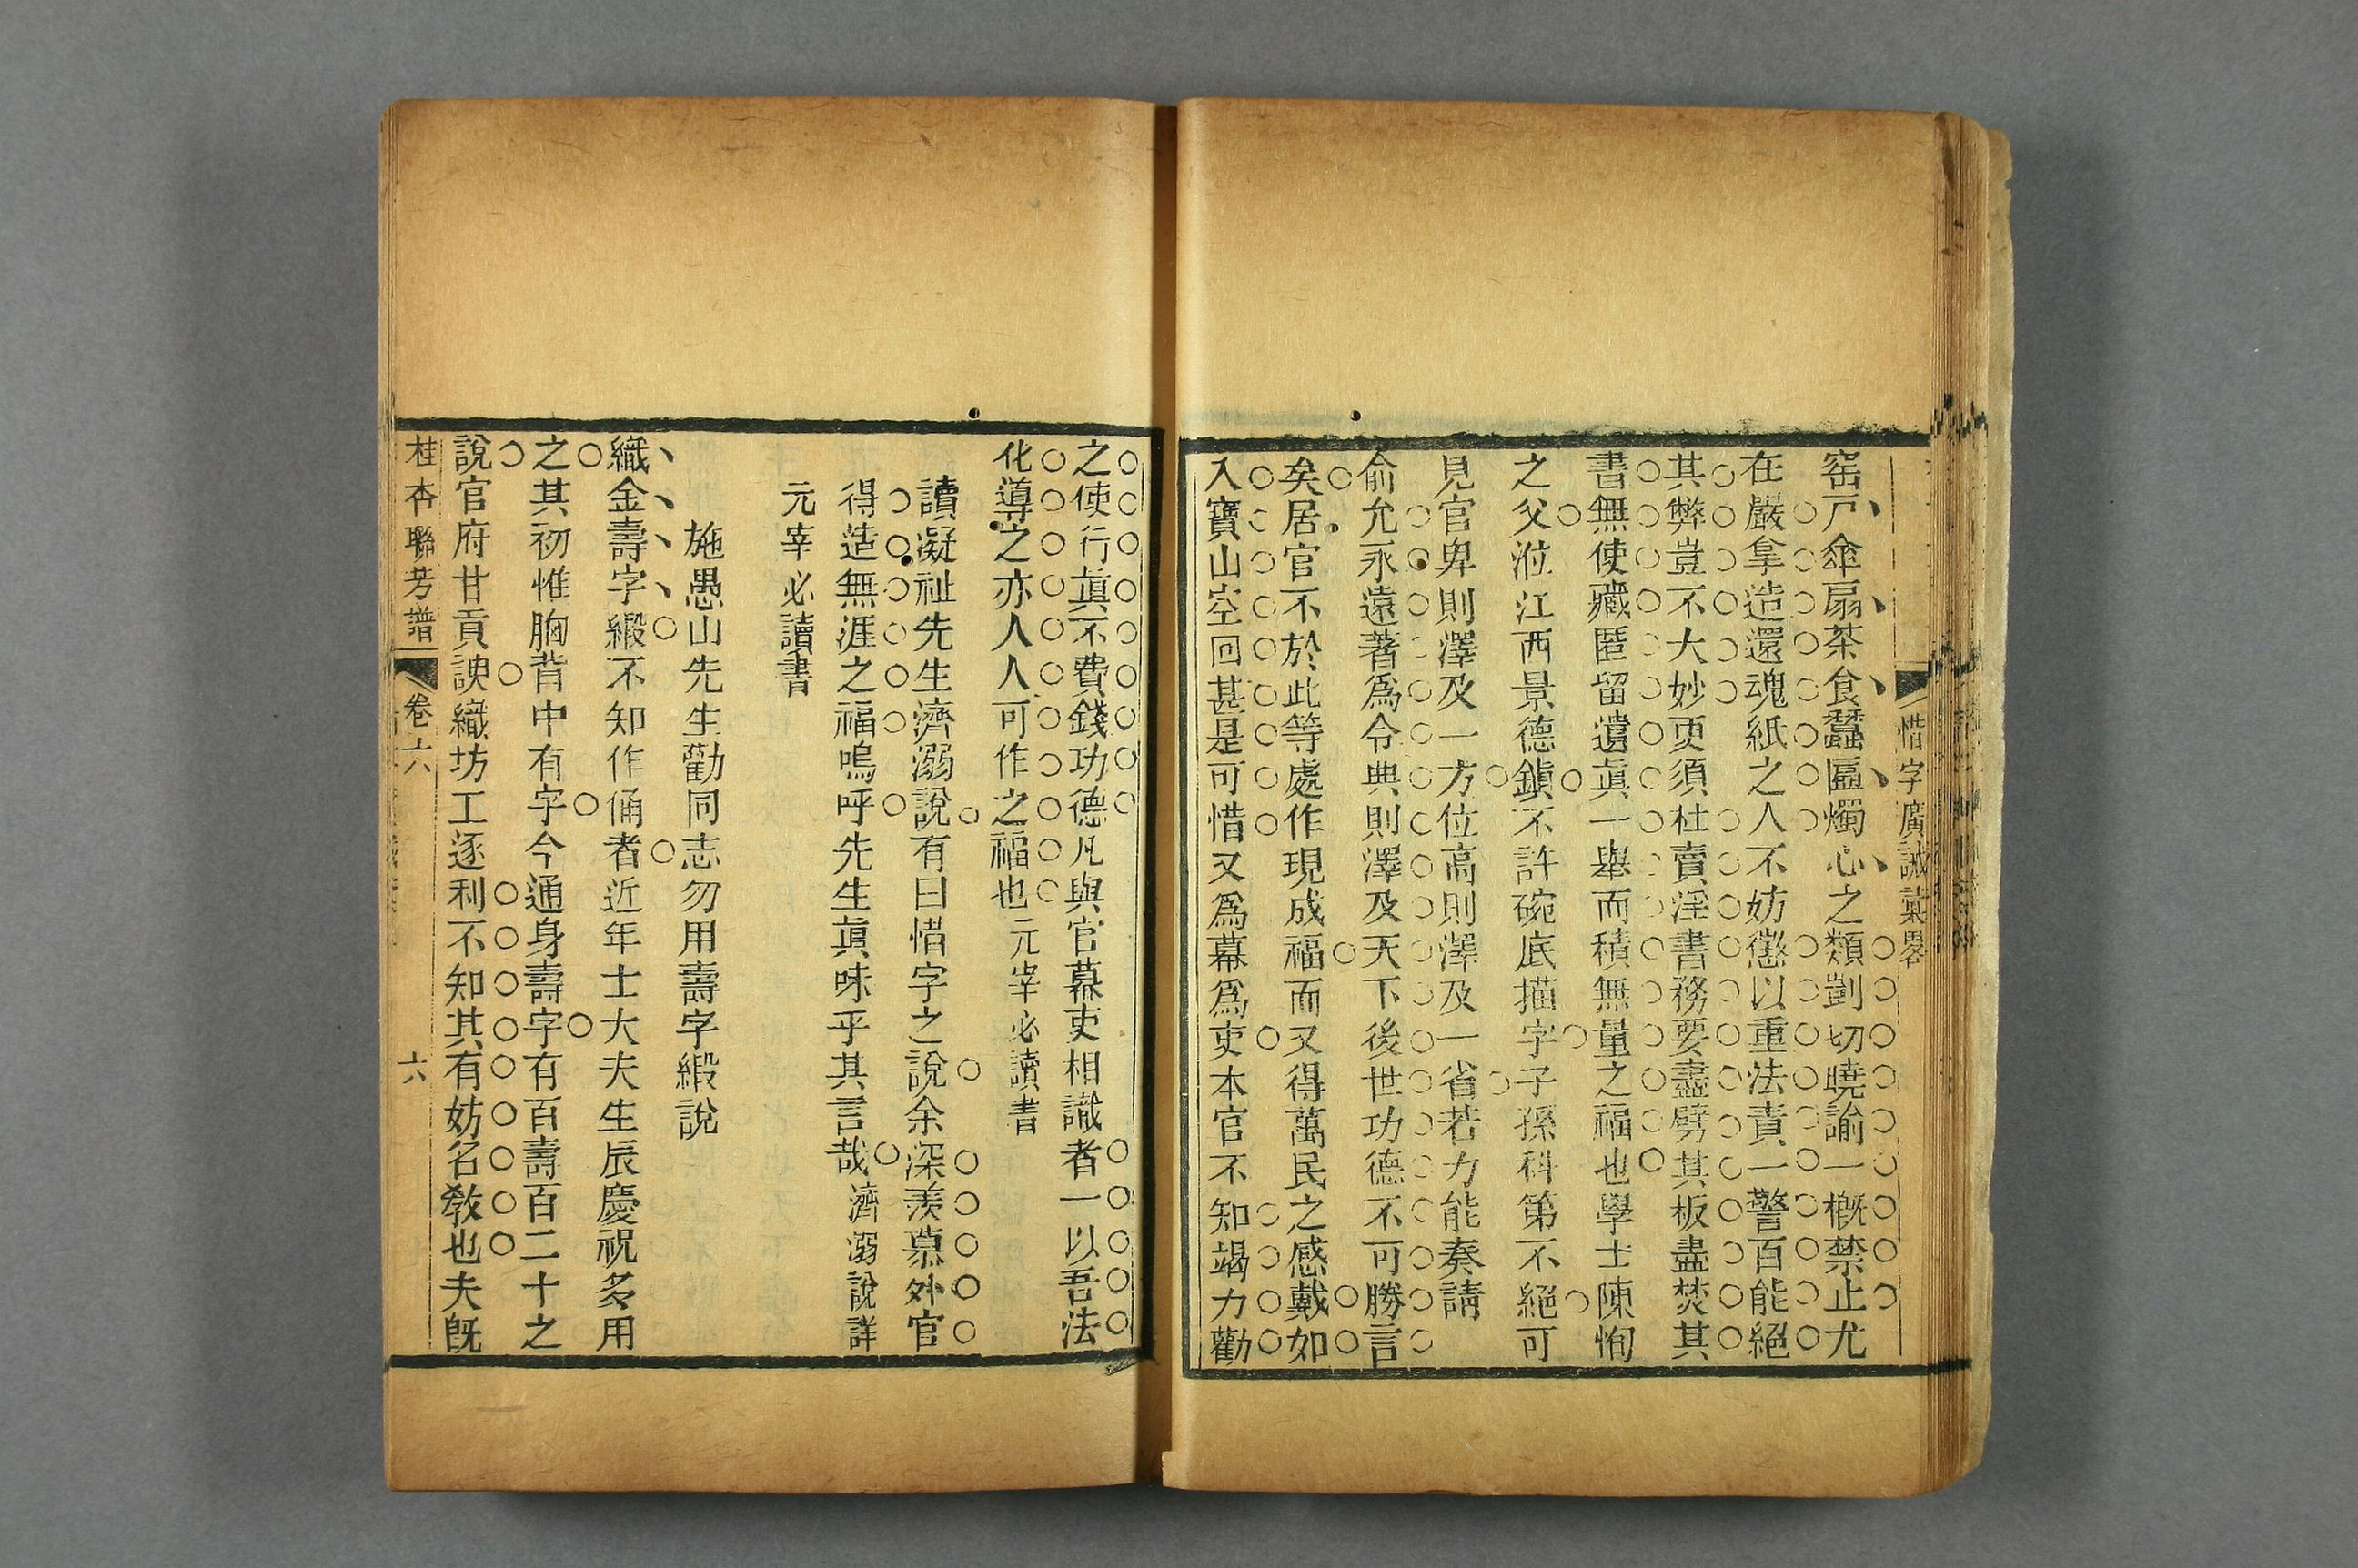 惜字廣誡彚畧
窑戸傘扇茶食蠶匾燭心之類剴切曉諭一概禁止尤
在嚴拿造還魂紙之人不妨懲以重法責一警百能絕
其弊豈不大妙更須杜賣淫書務要盡劈其板盡焚其
書無使藏匿留遺眞一舉而積無量之福也學士陳恂
之父涖江西景德鎭不許碗底描字子孫科第不絕可
見官卑則澤及一方位高則澤及一省若力能奏請
俞允永遠著爲令典則澤及天下後世功德不可勝言
矣居官不於此等處作現成福而又得萬民之感戴如
入寶山空回甚是可惜又爲幕爲吏本官不知竭力勸
之使行眞不費錢功德凡與官幕吏相識者一以吾法
化導之亦人人可作之福也元宰必讀書
讀凝祉先生濟溺說有曰惜字之說余深羨慕外官
得造無涯之福嗚呼先生眞昧乎其言哉濟溺說詳
元宰必讀書
施愚山先生勸同志勿用壽字緞說
織金壽字緞不知作俑者近年士大夫生辰慶祝多用
之其初惟胸背中有字今通身壽字有百壽百二十之
說官府甘貢諛織坊工逐利不知其有妨名敎也夫旣
桂杏聯芳譜 卷六 六